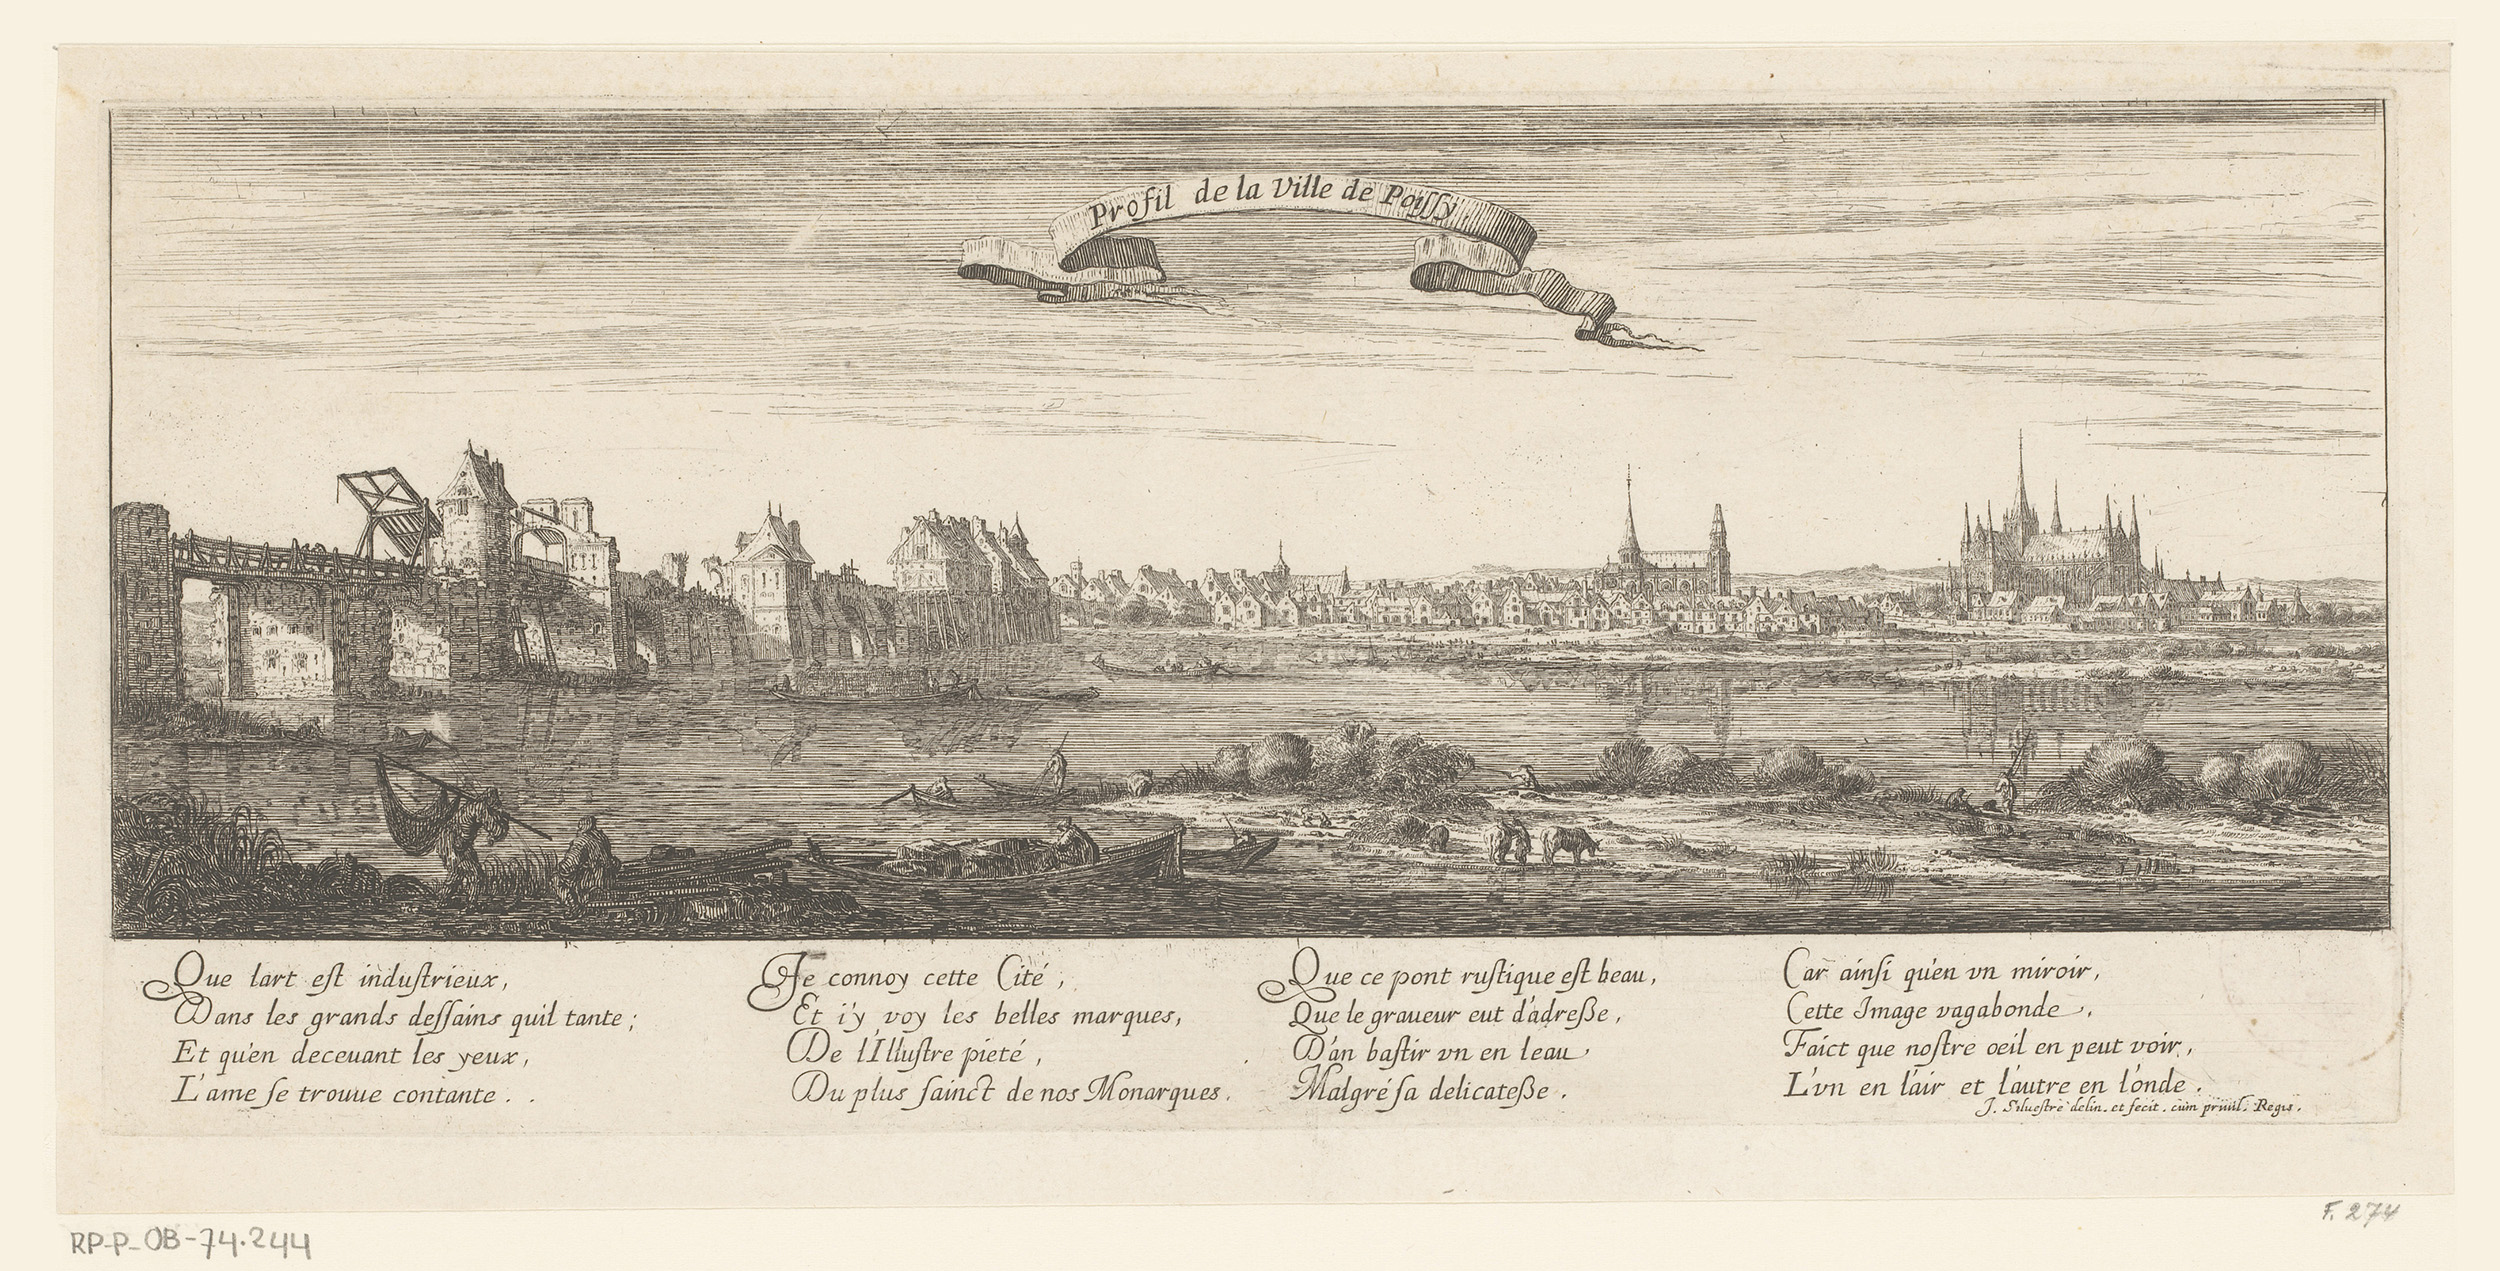 Profil de la Ville de Poiſſy.
Que lart eſt induſtrieux,
Dans les grands deſſains quil tante;
Et qu'en deceuant les yeux,
L'ame ſe trouue contante . .
Je connoy cette Cité,
Et i'y voy les belles marques,
De l'Illuſtre pieté,
Du plus ſainct de nos Monarques.
Que ce pont ruſtique eſt beau,
Que le graueur eut d'adreße,
D'an baſtir vn en leau
Malgré ſa delicateße.
Car ainſi qu'en vn miroir,
Cette Image vagabonde.
Faict que noſtre oeil en peut voir,
L'vn en l'air et l'autre en l'onde.
J. Silueſtre delin. et fecit. cum priuil. Regis.
RP-P-OB-74.244
F. 274